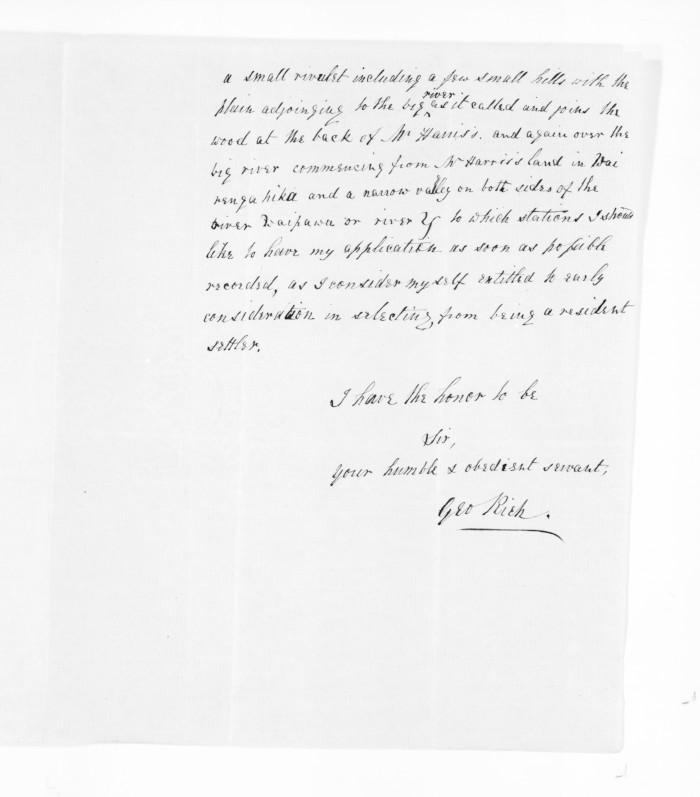 a small rivulet including a few small hills with the
plain adjoinging to the big river as it called and joins the
wood at the back of Mr Harris's. and again over the
big river commencing from Mr Harris's land in Wai
renga hika and a narrow valley on both sides of the
river Waipawa or river to which stations I should
like to have my application as soon as possible
recorded, as I consider myself entitled to early
consideration in selecting, from being a resident
settler.
I have the honor to be
Sir,
your humble & obedient servant,
Geo Rich.